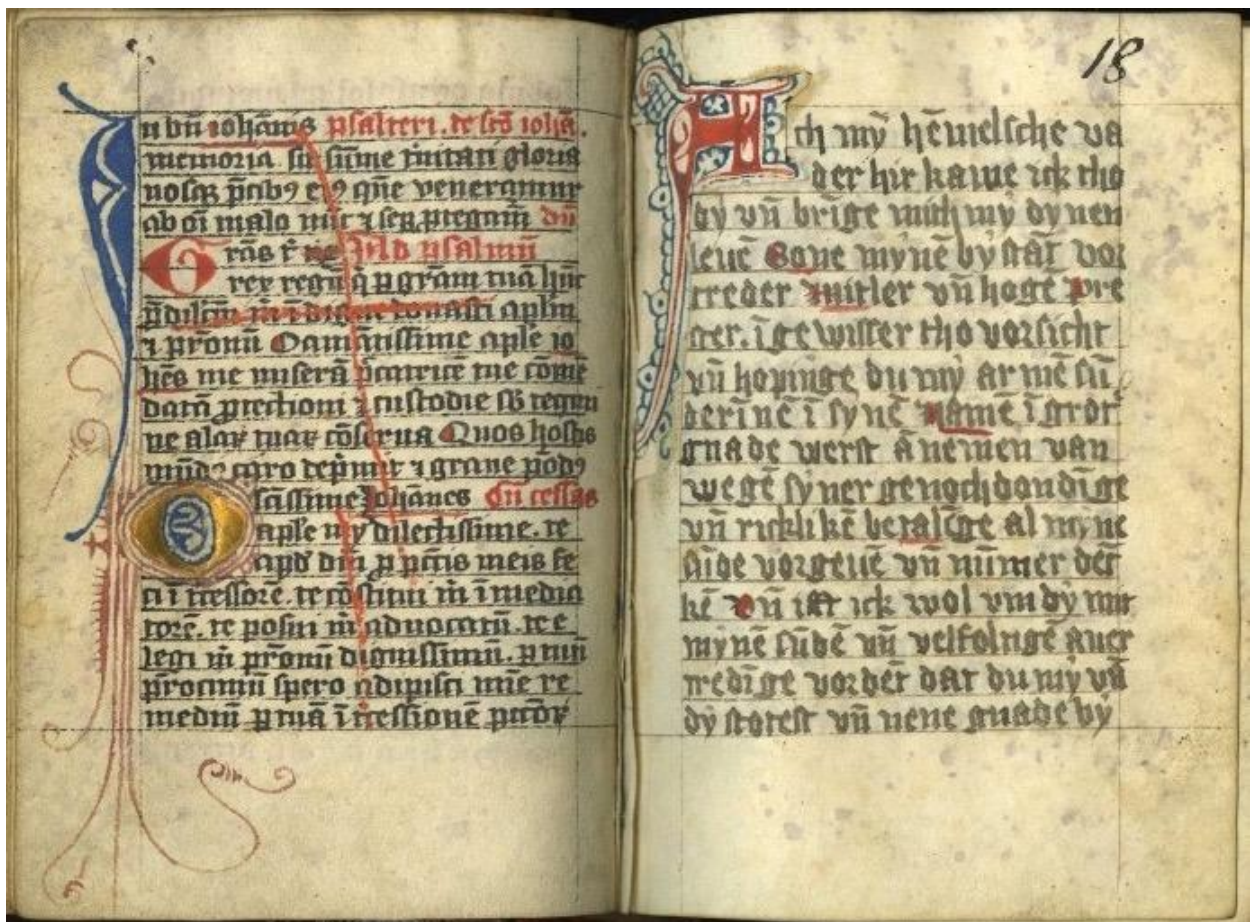 n bñ iohãnis psalteri. de scõ iohã.
memoria sit sũme tͥnitati gloria
nosqꝫ p̃cibꝰ eiꝰ qͣm veneramur
ab oĩ malo nũc ⁊ seꝑ ꝓtegant dñ
Gr̃as t̃ psalmũ
rex regũ q̃ ꝑ gr̃am tuã hũc
p̃dilc̃m donasti aplm̃
⁊ pr̃onũ Damãtissime aplẽ io
hẽs me miserã pc̃catricẽ tue cõmẽ
datã ꝓtectioni ⁊ custodie sb̃ tegmi
ne alaꝝ tuaꝝ cõserua Quos hostis
mũdꝰ caro dep̃mit ⁊ graue põdꝰ
scãssime Johãnes Dũ cessas
aplẽ my dilectissime. te
apd̃ dñm ꝓ pc̃tis meis fe
ci ĩt̃cessorẽ. te cõstitui m̃ ĩ media
torẽ. te posui m̃ aduocatũ. te e
legi m̃ pr̃onũ dignissimũ. ꝑ tuũ
pr̃ocinniũ spero adipisci ĩme re
mediũ ꝑ tuã ĩt̃cessionẽ pc̃oꝝ
18
Ach mỹ hẽmelsche va
der hir kame ick tho
dy vñ brĩge mith my dynen
leuẽ Sone mynẽ bystãt vor
treder mitler vñ hogẽ Pre
ster. ĩ ge wisser tho vorsicht
vñ hopinge du mỹ ar mẽ sũ
derĩnẽ ĩ synẽ Namẽ ĩ grot
gnade werst ãnemen van
wegẽ syner genochdondĩge
vñ ricklikẽ betalĩge al myne
sũde vorgeuẽ vñ nũmer dẽc
kẽ Vñ ist ick wol vm dy mit
mynẽ sũdẽ vñ velfolngẽ auer
tredĩge vordẽt dat du my vã
dỹ stotest vñ nene gnade by